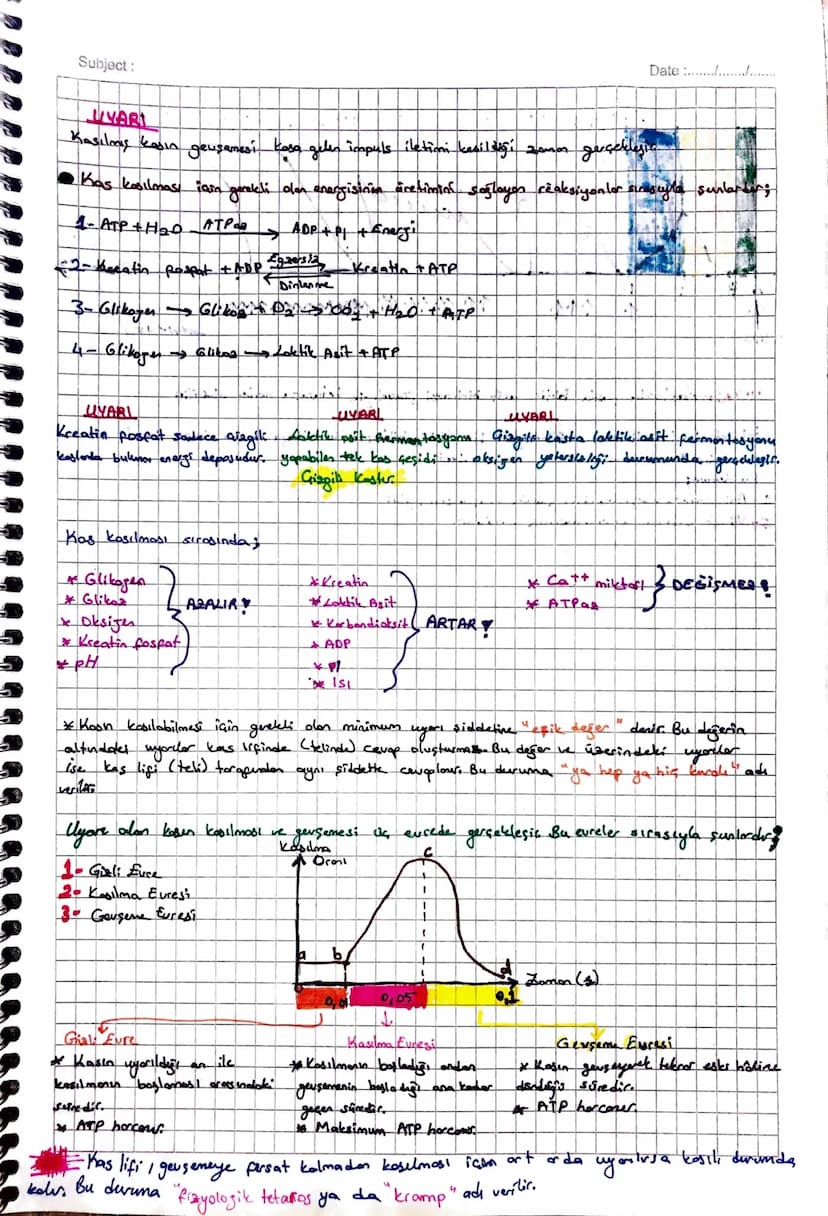 Subject :
Date :......./......./.......
UYARI
Kasılmış kasın gevşemesi kasa gelen impuls iletimi kesildiği zaman gerçekleşir.
● Kas kasılması için gerekli olan enerjisinin üretimini sağlayan reaksiyonlar sırasıyla şunlardır;
1- ATP + H2O ATPaz → ADP + Pi + Enerji
2- Kreatin fosfat + ADP Egzersiz Dinlenme Kreatin + ATP
3- Glikogen → Glikoz + O2 → CO2 + H2O + ATP
4- Glikogen → Glikoz → Laktik Asit + ATP
UYARI
Kreatin fosfat sadece çizgili
kaslarda bulunan enerji deposudur.
UYARI
Laktik asit fermantasyonu
yapabilen tek kas çeşidi
Çizgili Kastır.
UYARI
Çizgili kasta laktik asit fermentasyonu
oksijen yetersizliği durumunda gerçekleşir.
Kas kasılması sırasında;
* Glikogen
* Glikoz
* Oksijen
* Kreatin fosfat
* pH
AZALIR!
* Kreatin
* Laktik Asit
* Karbondioksit
* ADP
* Pi
* Isı
ARTAR!
* Ca++ miktarı
* ATPaz
DEĞİŞMEZ!
* Kasın kasılabilmesi için gerekli olan minimum uyarı şiddetine "eşik değer" denir. Bu değerin
altındaki uyarılar kas lifinde (telinde) cevap oluşturmaz. Bu değer ve üzerindeki uyarılar
ise kas lifi (teli) tarafından aynı şiddette cevaplanır. Bu duruma "ya hep ya hiç kuralı" adı
verilir.
Uyarı alan kasın kasılması ve gevşemesi üç evrede gerçekleşir. Bu evreler sırasıyla şunlardır;
1- Gizli Evre
2- Kasılma Evresi
3- Gevşeme Evresi
Kasılma
Oranı
c
a b
d
Zaman (s)
0 0,01 0,05 0,1
Gizli Evre
* Kasın uyarıldığı an ile
kasılmanın başlaması arasındaki
süredir.
* ATP harcanır.
Kasılma Evresi
* Kasılmanın başladığı andan
gevşemenin başladığı ana kadar
geçen süredir.
* Maksimum ATP harcanır.
Gevşeme Evresi
* Kasın gevşeyerek tekrar eski hâline
döndüğü süredir.
* ATP harcanır.
Kas lifi, gevşemeye fırsat kalmadan kasılması için art arda uyarılırsa kasılı durumda
kalır. Bu duruma "fizyolojik tetanos ya da "kramp" adı verilir.